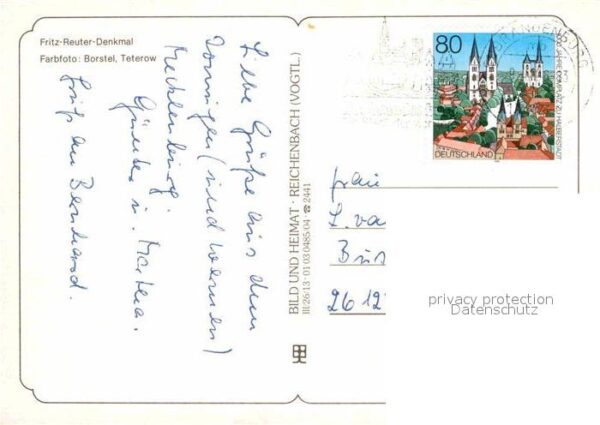 Fritz-Reuter-Denkmal
Farbfoto: Borstel, Teterow
Liebe Grüße aus dem
sonnigen (und warmen)
Mecklenburg.
Günter u. Martha.
Gruß an Bernhard.
BILD UND HEIMAT · REICHENBACH (VOGTL.)
III/26/13 · 01 03 0485/04 · ☎ 2441
80
DEUTSCHLAND
Frau
L. va
2612
privacy protection
Datenschutz